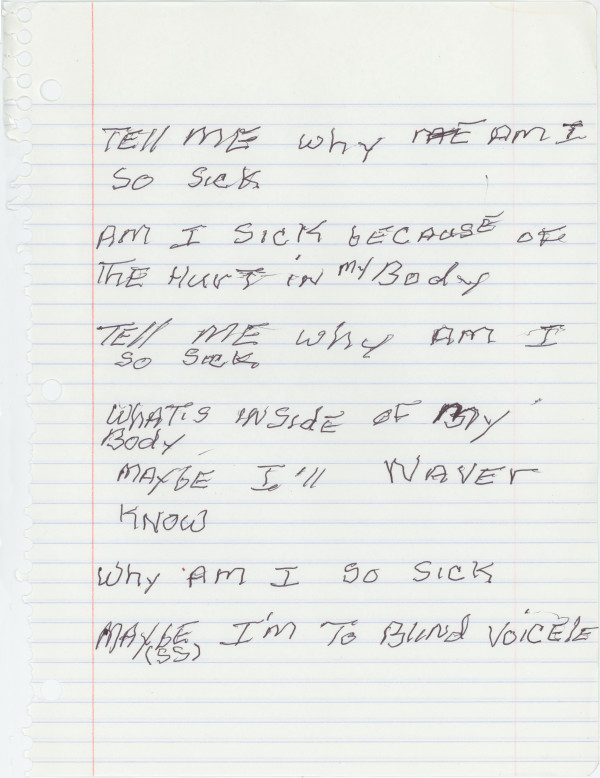 TEll ME Why AM I
SO SICK
AM I SICK bECAUSE OF
THE Hurt in My Body
TEll ME Why AM I
SO SICK
WHATIS INSidE OF My
Body
MAYbE I'll NAVEr
KNOW
Why AM I SO SICK
MAYbE I'M TO BliND VOiCElE
(SS)